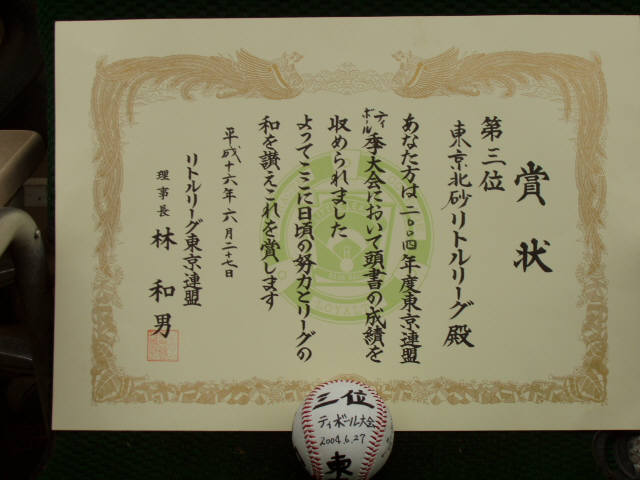 賞状
第三位
東京北砂リトルリーグ殿
あなた方は二〇〇四年度東京連盟
ティボール季大会において頭書の成績を
収められました
よってここに日頃の努力とリーグの
和を讃えこれを賞します
平成十六年六月二十七日
リトルリーグ東京連盟
理事長 林和男
三位
ティボール大会
2004.6.27
東